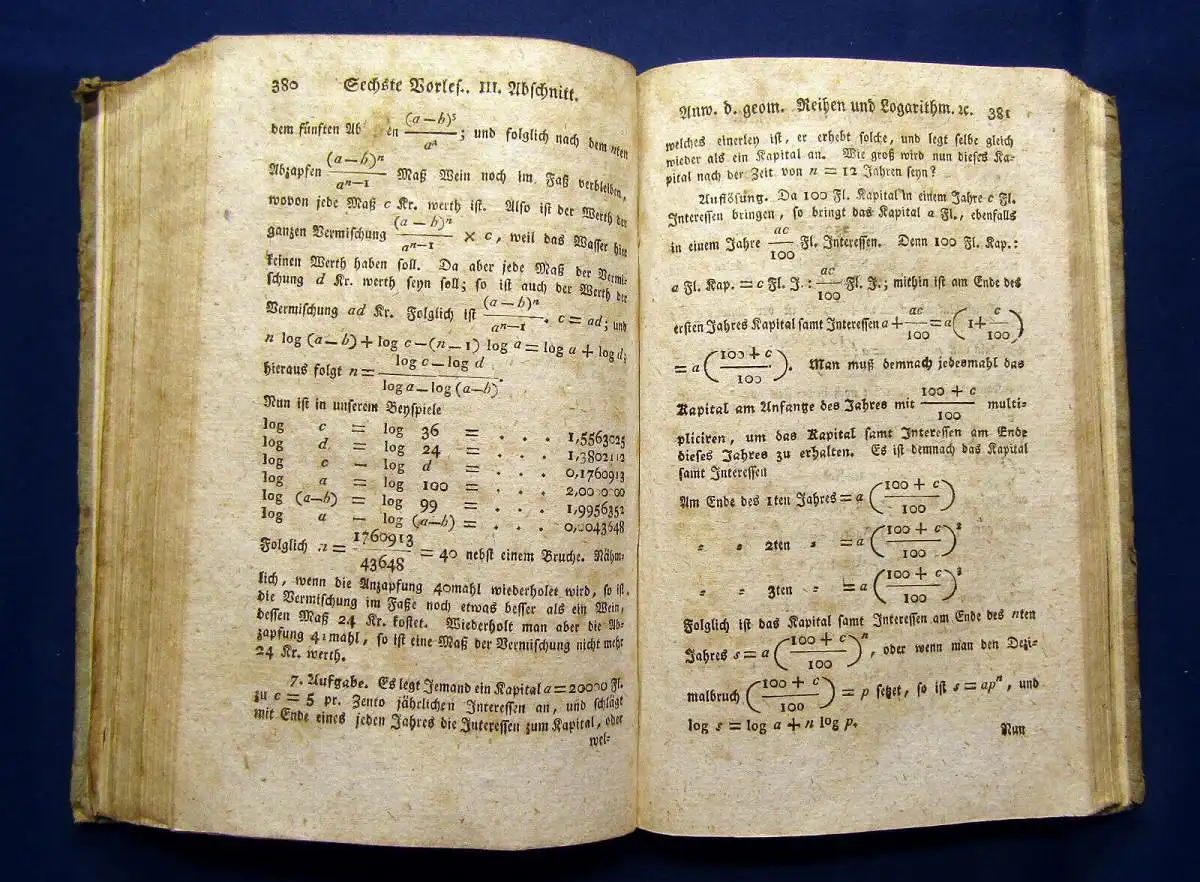 380 Sechste Vorles.. III. Abschnitt.
dem fünften Ab en (a—b)⁵/a⁴; und folglich nach dem nten
Abzapfen (a—b)ⁿ/aⁿ⁻¹ Maß Wein noch im Faß verbleiben,
wovon jede Maß c Kr. werth ist. Also ist der Werth der
ganzen Vermischung (a—b)ⁿ/aⁿ⁻¹ × c, weil das Wasser hier
keinen Werth haben soll. Da aber jede Maß der Vermi-
schung d Kr. werth seyn soll; so ist auch der Werth der
Vermischung ad Kr. Folglich ist (a—b)ⁿ/aⁿ⁻¹. c = ad; und
n log (a—b) + log c—(n—1) log a = log a + log d;
hieraus folgt n = (log c—log d)/(log a—log (a—b)).
Nun ist in unserem Beyspiele
log c = log 36 = . . . 1,5563025
log d = log 24 = . . . 1,3802112
log c — log d = . . . 0,1760913
log a = log 100 = . . . 2,00 0 00
log (a—b) = log 99 = . . . 1,9956352
log a — log (a—b) = . . . 0,0043648
Folglich n = 1760913/43648 = 40 nebst einem Bruche. Nähm-
lich, wenn die Anzapfung 40mahl wiederholet wird, so ist
die Vermischung im Faße noch etwas besser als ein Wein,
dessen Maß 24 Kr. kostet. Wiederholt man aber die Ab-
zapfung 41mahl, so ist eine Maß der Vermischung nicht mehr
24 Kr. werth.
7. Aufgabe. Es legt Jemand ein Kapital a = 20000 Fl.
zu c = 5 pr. Zento jährlichen Interessen an, und schlägt
mit Ende eines jeden Jahres die Interessen zum Kapital, oder
wel-
Anw. d. geom. Reihen und Logarithm. ꝛc. 381
welches einerley ist, er erhebt solche, und legt selbe gleich
wieder als ein Kapital an. Wie groß wird nun dieses Ka-
pital nach der Zeit von n = 12 Jahren seyn?
Auflösung. Da 100 Fl. Kapital in einem Jahre c Fl.
Interessen bringen, so bringt das Kapital a Fl., ebenfalls
in einem Jahre ac/100 Fl. Interessen. Denn 100 Fl. Kap.:
a Fl. Kap. = c Fl. J.: ac/100 Fl. J.; mithin ist am Ende des
ersten Jahres Kapital samt Interessen a + ac/100 = a(1 + c/100)
= a((100 + c)/100). Man muß demnach jedesmahl das
Kapital am Anfange des Jahres mit (100 + c)/100 multi-
pliciren, um das Kapital samt Interessen am Ende
dieses Jahres zu erhalten. Es ist demnach das Kapital
samt Interessen
Am Ende des 1ten Jahres = a((100 + c)/100)
= = 2ten = = a((100 + c)/100)²
= = 3ten = = a((100 + c)/100)³
Folglich ist das Kapital samt Interessen am Ende des nten
Jahres s = a((100 + c)/100)ⁿ, oder wenn man den Dezi-
malbruch ((100 + c)/100) = p setzet, so ist s = apⁿ, und
log s = log a + n log p.
Nun